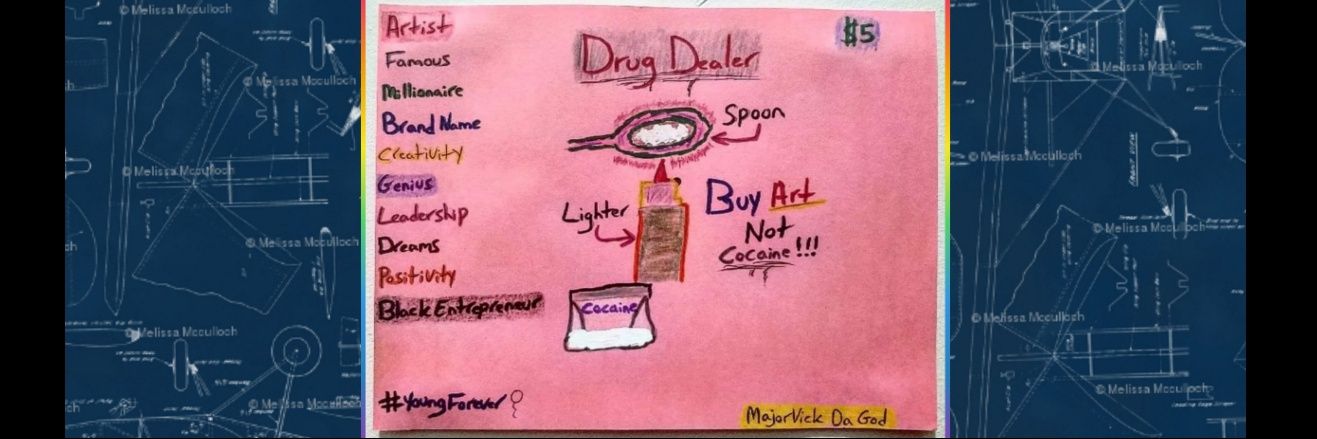 © Melissa Mcculloch
© Melissa Mcculloch
© Melissa Mcculloch
© Melissa Mcculloch
© Melissa Mcculloch
© Melissa Mcculloch
Artist
Famous
Millionaire
Brand Name
Creativity
Genius
Leadership
Dreams
Positivity
Black Entrepreneur
#YoungForever
Drug Dealer
$5
Spoon
Lighter
Buy Art
Not
Cocaine!!!
Cocaine
MajorVick Da God
© Melissa Mcculloch
© Melissa Mcculloch
© Melissa Mcculloch
© Melissa Mcculloch
© Melissa Mcculloch